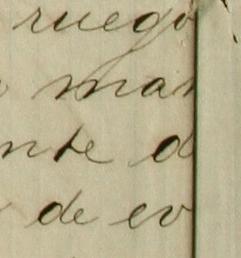 ruego
mar
nte d
de ev